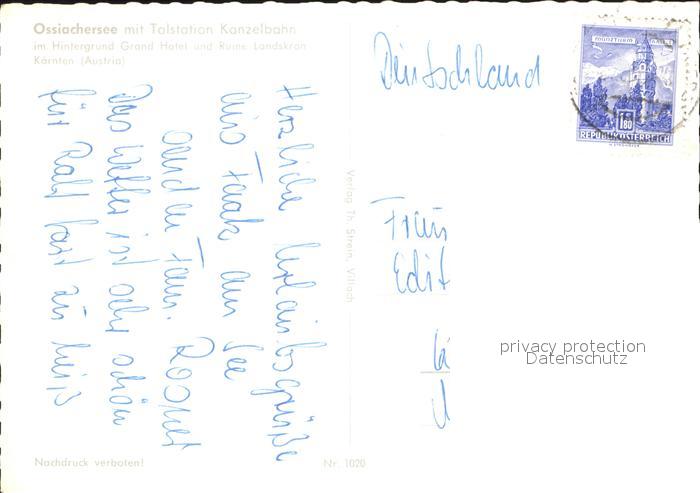 Ossiachersee mit Talstation Kanzelbahn
im Hintergrund Grand Hotel und Ruine Landskron
Kärnten (Austria)
Herzliche Urlaubsgrüße
aus Faak am See
send en Fam.
Das Wetter ist sehr schön
für Ralf fast zu heiß
Nachdruck verboten!
Verlag Th. Strein, Villach
Nr. 1020
Deutschland
MÜNZTURM
1.80
REPUBLIK ÖSTERREICH
Frau
Edit
privacy protection
Datenschutz